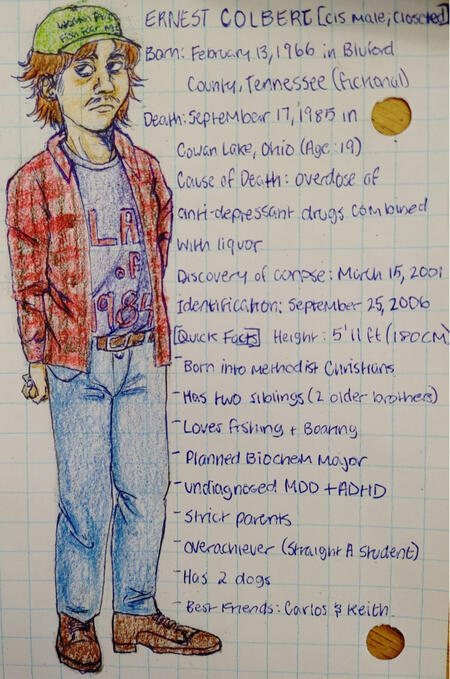 ERNEST COLBERT [cis male; closeted]
Born: February 13, 1966 in Bluford
County, Tennessee (fictional)
Death: September 17, 1985 in
Cowan Lake, Ohio (Age: 19)
Cause of Death: overdose of
anti-depressant drugs combined
with liquor
Discovery of corpse: March 15, 2001
Identification: September 25, 2006
[Quick Facts] Height: 5'11 ft (180CM)
- Born into Methodist Christians
- Has two siblings (2 older brothers)
- Loves fishing + Boating
- Planned Biochem Major
- undiagnosed MDD + ADHD
- Strict parents
- overachiever (Straight A student)
- Has 2 dogs
- Best Friends: Carlos & Keith
Women
Fish Fear Me
LA
of
1984